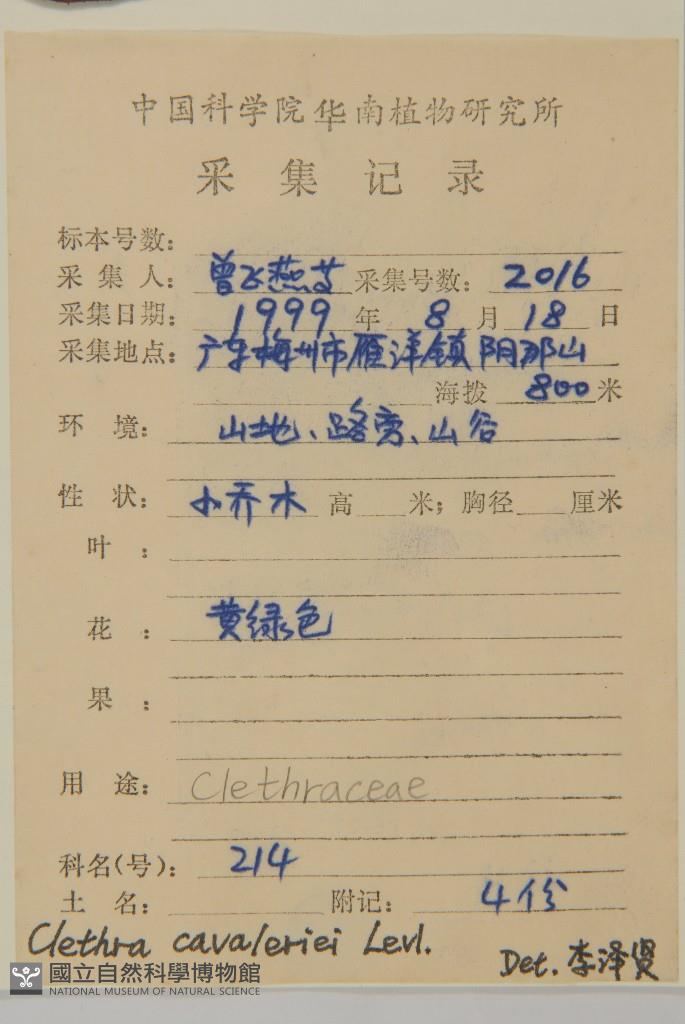 中国科学院华南植物研究所
采集记录
标本号数:
采集人: 曾飞燕等 采集号数: 2016
采集日期: 1999 年 8 月 18 日
采集地点: 广东梅州市雁洋镇阴那山
海拨 800 米
环境: 山地、路旁、山谷
性状: 小乔木 高 米; 胸径 厘米
叶:
花: 黄绿色
果:
用途: Clethraceae
科名(号): 214
土名: 附记: 4份
Clethra cavaleriei Levl.
Det. 李泽贤
國立自然科學博物館
NATIONAL MUSEUM OF NATURAL SCIENCE